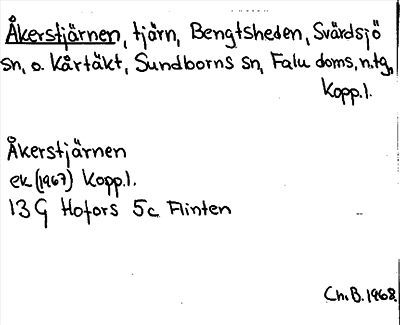 Åkerstjärnen, tjärn, Bengtsheden, Svärdsjö
sn, o. Kårtäkt, Sundborns sn, Falu doms, n. tg,
Kopp.l.
Åkerstjärnen
ek (1967) Kopp.l.
13 G Hofors 5c Flinten
Ch. B. 1968.